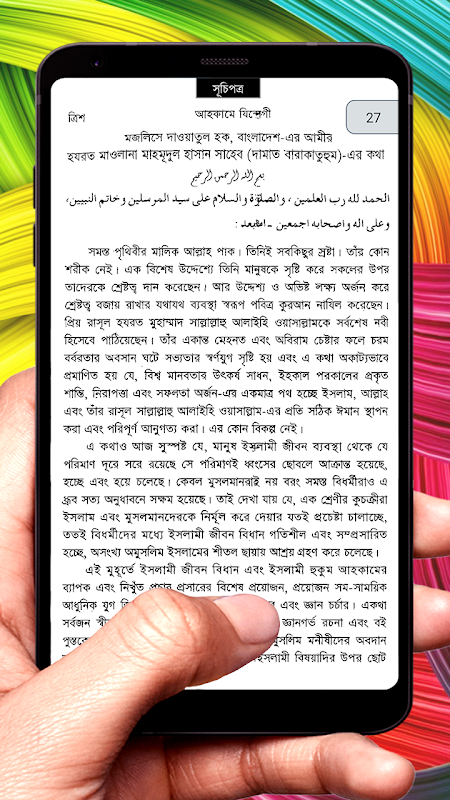 সূচিপত্র
ত্রিশ
আহকামে যিন্দেগী
27
মজলিসে দাওয়াতুল হক, বাংলাদেশ-এর আমীর
হযরত মাওলানা মাহমূদুল হাসান সাহেব (দামাত বারাকাতুহুম)-এর কথা
بسم الله الرحمن الرحيم
الحمد لله رب العلمين ، والصلوٰة والسلام على سيد المرسلين وخاتم النبيين،
وعلى اله واصحابه اجمعين ـ امابعد :
সমস্ত পৃথিবীর মালিক আল্লাহ পাক। তিনিই সবকিছুর স্রষ্টা। তাঁর কোন
শরীক নেই। এক বিশেষ উদ্দেশ্যে তিনি মানুষকে সৃষ্টি করে সকলের উপর
তাদেরকে শ্রেষ্টত্ব দান করেছেন। আর উদ্দেশ্য ও অভিষ্ট লক্ষ্য অর্জন করে
শ্রেষ্টত্ব বজায় রাখার যথাযথ ব্যবস্থা স্বরূপ পবিত্র কুরআন নাযিল করেছেন।
প্রিয় রাসূল হযরত মুহাম্মাদ সাল্লাল্লাহু আলাইহি ওয়াসাল্লামকে সর্বশেষ নবী
হিসেবে পাঠিয়েছেন। তাঁর একান্ত মেহনত এবং অবিরাম চেষ্টার ফলে চরম
বর্বরতার অবসান ঘটে সভ্যতার স্বর্ণযুগ সৃষ্টি হয় এবং এ কথা অকাট্যভাবে
প্রমাণিত হয় যে, বিশ্ব মানবতার উৎকর্ষ সাধন, ইহকাল পরকালের প্রকৃত
শান্তি, নিরাপত্তা এবং সফলতা অর্জন-এর একমাত্র পথ হচ্ছে ইসলাম, আল্লাহ
এবং তাঁর রাসূল সাল্লাল্লাহু আলাইহি ওয়াসাল্লাম-এর প্রতি সঠিক ঈমান স্থাপন
করা এবং পরিপূর্ণ আনুগত্য করা। এর কোন বিকল্প নেই।
এ কথাও আজ সুস্পষ্ট যে, মানুষ ইসলামী জীবন ব্যবস্থা থেকে যে
পরিমাণ দূরে সরে রয়েছে সে পরিমাণই ধ্বংসের ছোবলে আক্রান্ত হয়েছে,
হচ্ছে এবং হয়ে চলেছে। কেবল মুসলমানরাই নয় বরং সমস্ত বিধর্মীরাও এ
ধ্রুব সত্য অনুধাবনে সক্ষম হয়েছে। তাই দেখা যায় যে, এক শ্রেণীর কুচক্রীরা
ইসলাম এবং মুসলমানদেরকে নির্মূল করে দেয়ার যতই প্রচেষ্টা চালাচ্ছে,
ততই বিধর্মীদের মধ্যে ইসলামী জীবন বিধান গতিশীল এবং সম্প্রসারিত
হচ্ছে, অসংখ্য অমুসলিম ইসলামের শীতল ছায়ায় আশ্রয় গ্রহণ করে চলেছে।
এই মুহূর্তে ইসলামী জীবন বিধান এবং ইসলামী হুকুম আহকামের
ব্যাপক এবং নিখুঁত প্রচার প্রসারের বিশেষ প্রয়োজন, প্রয়োজন সম-সাময়িক
আধুনিক যুগ এবং জ্ঞান চর্চার। একথা
সর্বজন জ্ঞানগর্ভ রচনা এবং বই
মুসলিম মনীষীদের অবদান
ইসলামী বিষয়াদির উপর ছোট